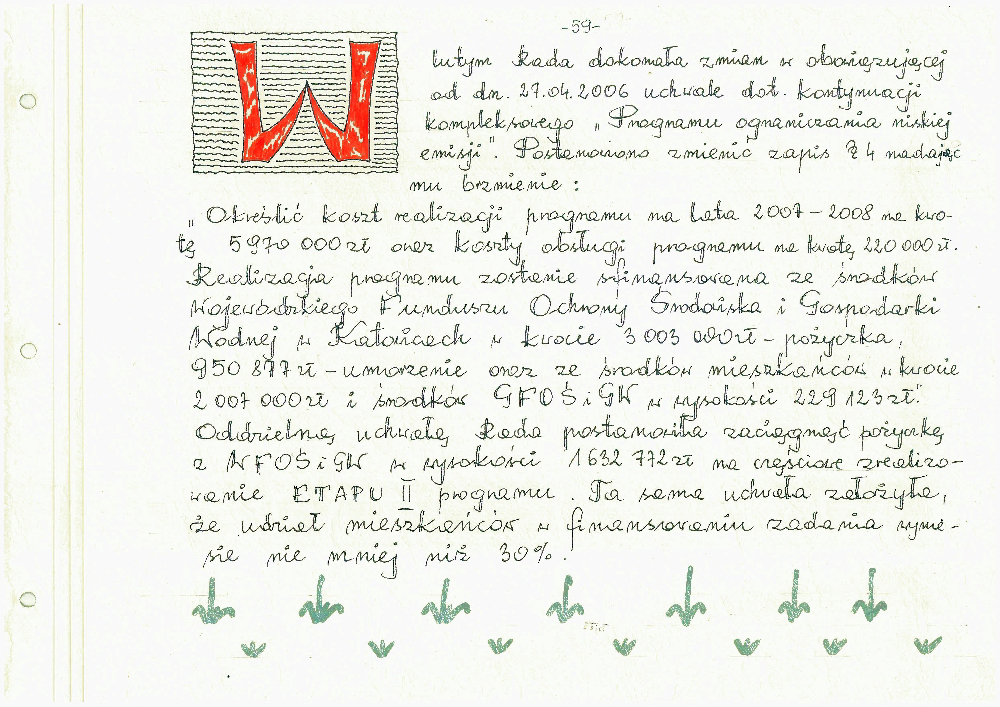 -59-
W
lutym Rada dokonała zmian w obowiązującej
od dn. 27.04.2006 uchwale dot. kontynuacji
kompleksowego „Programu ograniczania niskiej
emisji". Postanowiono zmienić zapis § 4 nadając
mu brzmienie :
„Określić koszt realizacji programu na lata 2007 – 2008 na kwo-
tę 5 970 000 zł oraz koszty obsługi programu na kwotę 220 000 zł.
Realizacja programu zostanie sfinansowana ze środków
Wojewódzkiego Funduszu Ochrony Środowiska i Gospodarki
Wodnej w Katowicach w kwocie 3 003 000 zł – pożyczka,
950 877 zł – umorzenie oraz ze środków mieszkańców w kwocie
2 007 000 zł i środków GFOŚiGW w wysokości 229 123 zł."
Oddzielną uchwałą Rada postanowiła zaciągnąć pożyczkę
z WFOŚiGW w wysokości 1 632 772 zł na częściowe zrealizo-
wanie ETAPU II programu. Ta sama uchwała założyła,
że udział mieszkańców w finansowaniu zadania wynie-
sie nie mniej niż 30%.